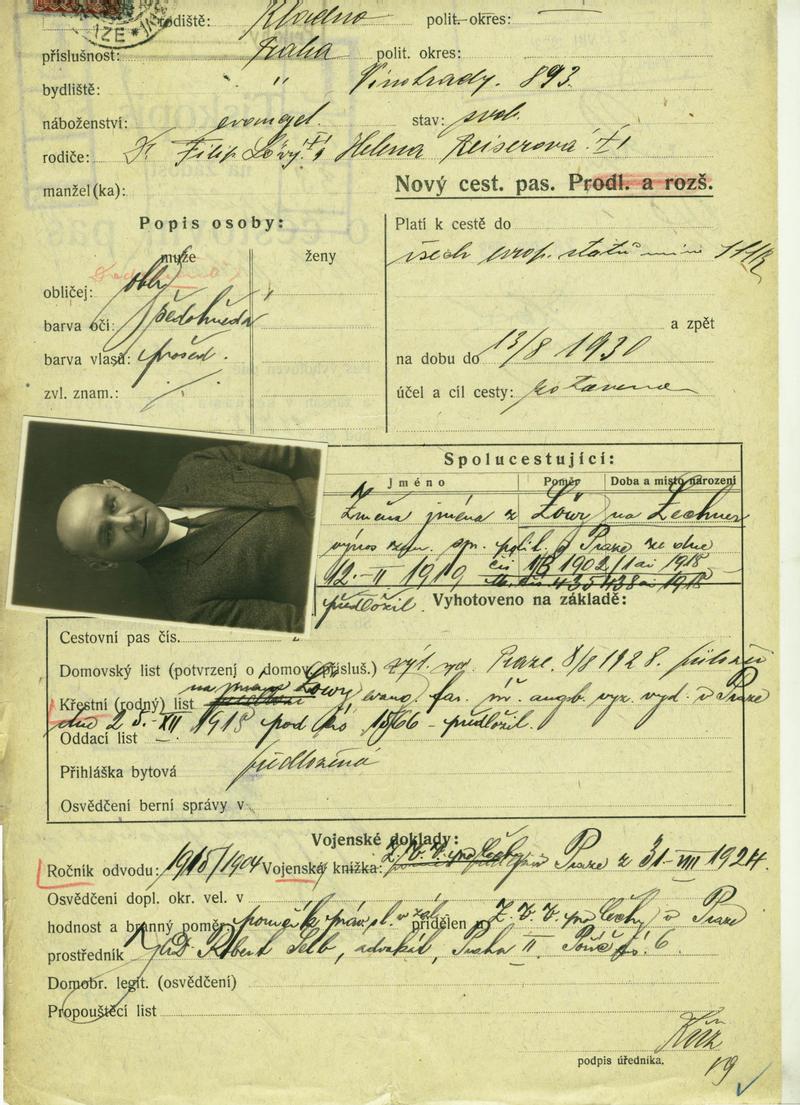 IZE
rodiště: Kladno polit. okres: —
příslušnost: Praha polit. okres:
bydliště: " Vinohrady. 893.
náboženství: evangel. stav: svob.
rodiče: Dr Filip Löwy † Helena Reiserová †
manžel(ka):
Nový cest. pas. Prodl. a rozš.
Popis osoby:
muže ženy
obličej: oblý
barva očí: šedohnědá
barva vlasů: prošed.
zvl. znam.: ·/·
Platí k cestě do
všech evrop. států mim
a zpět
na dobu do 13/8 1930
účel a cíl cesty: zotavená
Spolucestující:
Jméno Poměr Doba a místo narození
Změna jména z Löwy na Lechner
výnos zem. spr. polit. v Praze ze dne
12. – II 1919 čís 1902/1 ai 1918
předložil.
Vyhotoveno na základě:
Cestovní pas čís.
Domovský list (potvrzení o domov. přísluš.) Praze. 8/8 1928.
na jméno Löwy
Křestní (rodný) list evang. far. úř. augb. vyz. vyd. v Praze
dne XII 1918 pod čís 1866 – předložil.
Oddací list —
Přihláška bytová předložená
Osvědčení berní správy v
Vojenské doklady:
Ročník odvodu: 1915/1904 Vojenská knížka: Z. V. V. pro Čechy v Praze z 31–VIII 1924.
Osvědčení dopl. okr. vel. v
hodnost a branný poměr: v zál. přidělen u Z. V. V. pro Čechy v Praze
prostředník JUD Robert , advokát, Praha II
Domobr. legit. (osvědčení)
Propouštěcí list
podpis úředníka.
19